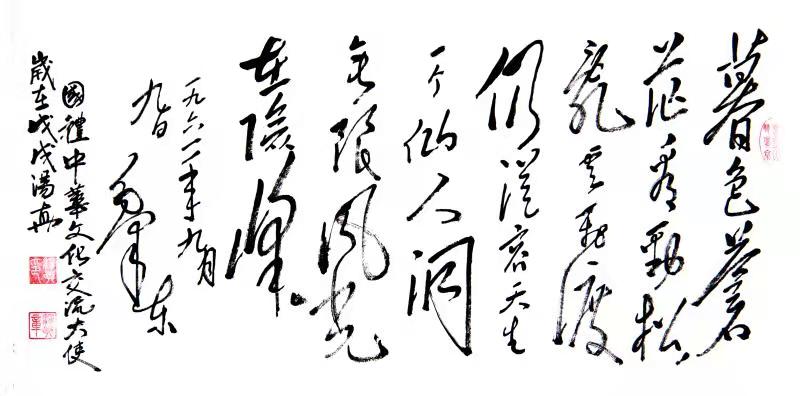 暮色蒼
茫看勁松
亂雲飛渡
仍從容天生
一个仙人洞
無限風光
在險峰
一九六一年九月
九日 毛澤东
國禮中華文化交流大使
歲在戊戌湯